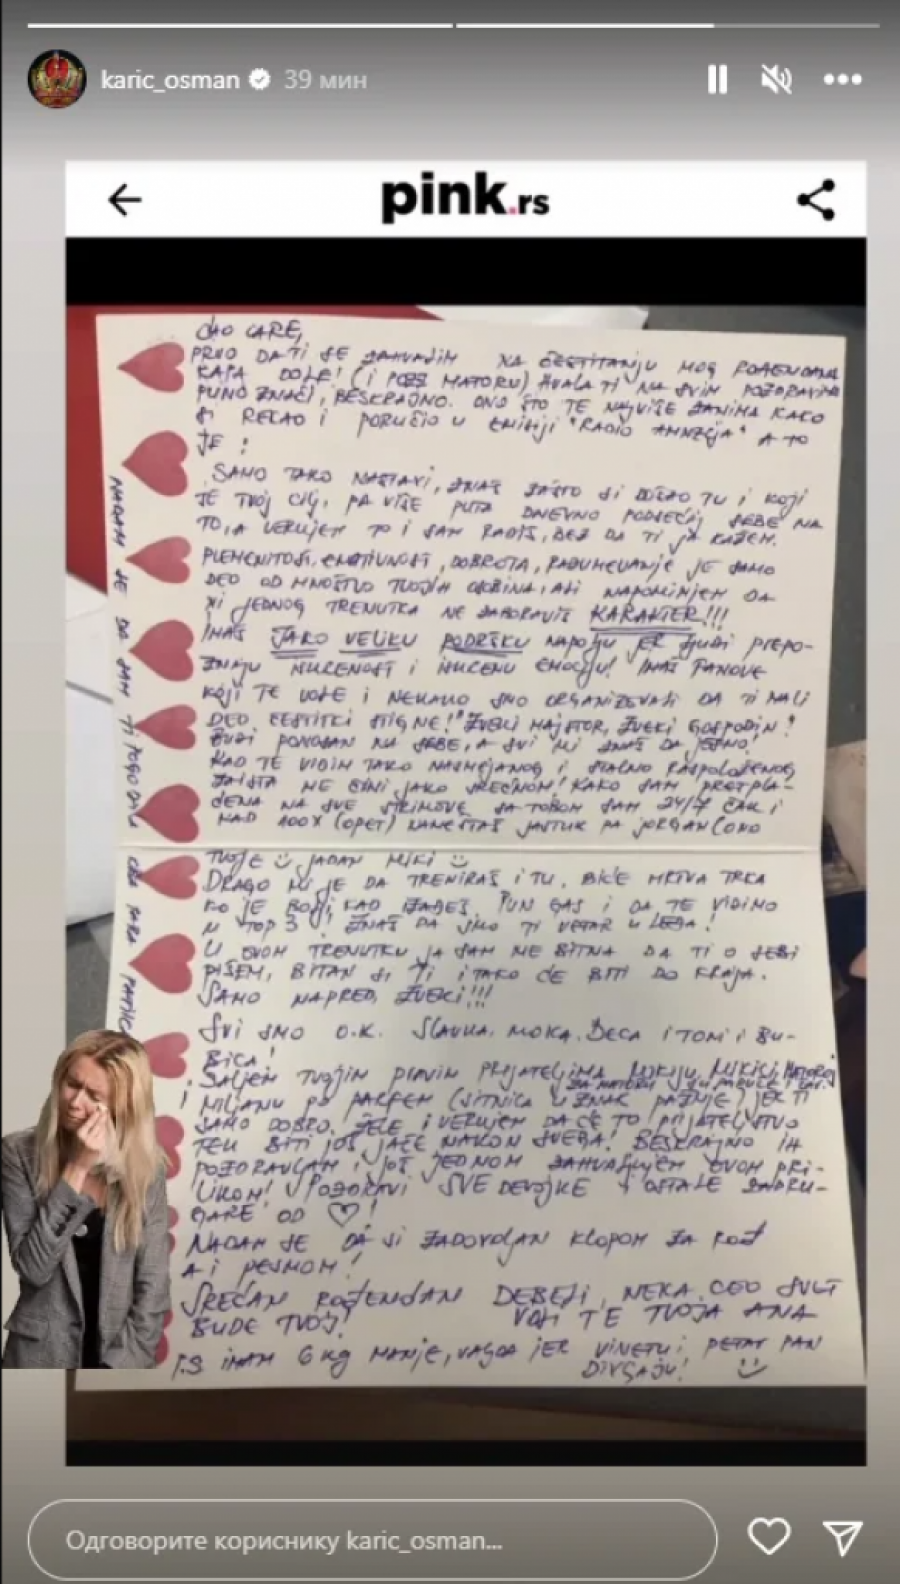 karic_osman 39 мин
pink.rs
ĆAO CARE,
PRVO DA TI SE ZAHVALIM NA ČESTITANJU MOG ROĐENDANA
KAPA DOLE! (I MATORU) HVALA TI NA SVIM POZDRAVIMA
PUNO ZNAČI, BESKRAJNO. ONO ŠTO TE NAJVIŠE ZANIMA KAKO
SI REKAO I PORUČIO U EMISIJI "RADIO AMNEZIJA" A TO
JE:
SAMO TAKO NASTAVI, ZNAŠ ZAŠTO SI DOŠAO TU I KOJI
JE TVOJ CILJ, PA VIŠE PUTA DNEVNO PODSEĆAJ SEBE NA
TO, A VERUJEM TO I SAM RADIŠ, BEZ DA TI JA KAŽEM.
PLEMENITOST, EMOTIVNOST, DOBROTA, RAZUMEVANJE JE SAMO
DEO OD MNOŠTVO TVOJIH OSOBINA, ALI NAPOMINJEM DA
NI JEDNOG TRENUTKA NE ZABORAVIŠ KARAKTER!!!
IMAŠ JAKO VELIKU PODRŠKU NAPOLJU JER LJUDI PREPO-
ZNAJU ISKRENOST I ISKRENU EMOCIJU! IMAŠ FANOVE
KOJI TE VOLE I NEKAKO SMO ORGANIZOVALI DA TI MALI
DEO ČESTITKI STIGNE! "ŽVEKI MAJSTOR, ŽVEKI GOSPODIN"
BUDI PONOSAN NA SEBE, A SVI MI ZNAŠ DA JESMO!
KAD TE VIDIM TAKO NASMEJANOG I STALNO RASPOLOŽENOG
ZAISTA ME ČINI JAKO SREĆNOM! KAKO SAM PRETPLA-
ĆENA NA SVE STRIMOVE SA TOBOM SAM 24/7 ČAK I
KAD 100X (OPET) NAMEŠTAŠ JASTUK PA JORGAN (ONO
TVOJE ☺ JADAN MIKI ☺
DRAGO MI JE DA TRENIRAŠ I TU. BIĆE MRTVA TRKA
KO JE BOLJI KAD IZAĐEŠ. PUN GAS I DA TE VIDIMO
U TOP 3. ZNAŠ DA SMO TI VETAR U LEĐA!
U OVOM TRENUTKU JA SAM NE BITNA DA TI O SEBI
PIŠEM, BITAN SI TI I TAKO ĆE BITI DO KRAJA.
SAMO NAPRED, ŽVEKI!!!
SVI SMO O.K. SLAVKA, MOKA, DECA I TOMI I BU-
BICA!
ŠALJEM TVOJIM PRAVIM PRIJATELJIMA MIKIJU, MIKICI,
I MILJANU PO PARFEM (SITNICA U ZNAK PAŽNJE) JER TI
SAMO DOBRO ŽELE I VERUJEM DA ĆE TO PRIJATELJSTVO
TEK BITI JOŠ JAČE NAKON SVEGA! BESKRAJNO IH
POZDRAVLJAM I JOŠ JEDNOM ZAHVALJUJEM OVOM PRI-
LIKOM! POZDRAVI SVE DEVOJKE I OSTALE ZADRU-
GARE OD ♡!
NADAM SE DA SI ZADOVOLJAN KLOPOM ZA ROĐ
A I PESMOM!
SREĆAN ROĐENDAN DEBELI, NEKA CEO SVET
BUDE TVOJ! VOLI TE TVOJA ANA
P.S IMAM 6 KG MANJE, VALJDA JER VINETU I PETAR PAN
DIVLJAJU! ☺
NADAM SE DA SAM TI POGODILA
Одговорите кориснику karic_osman...